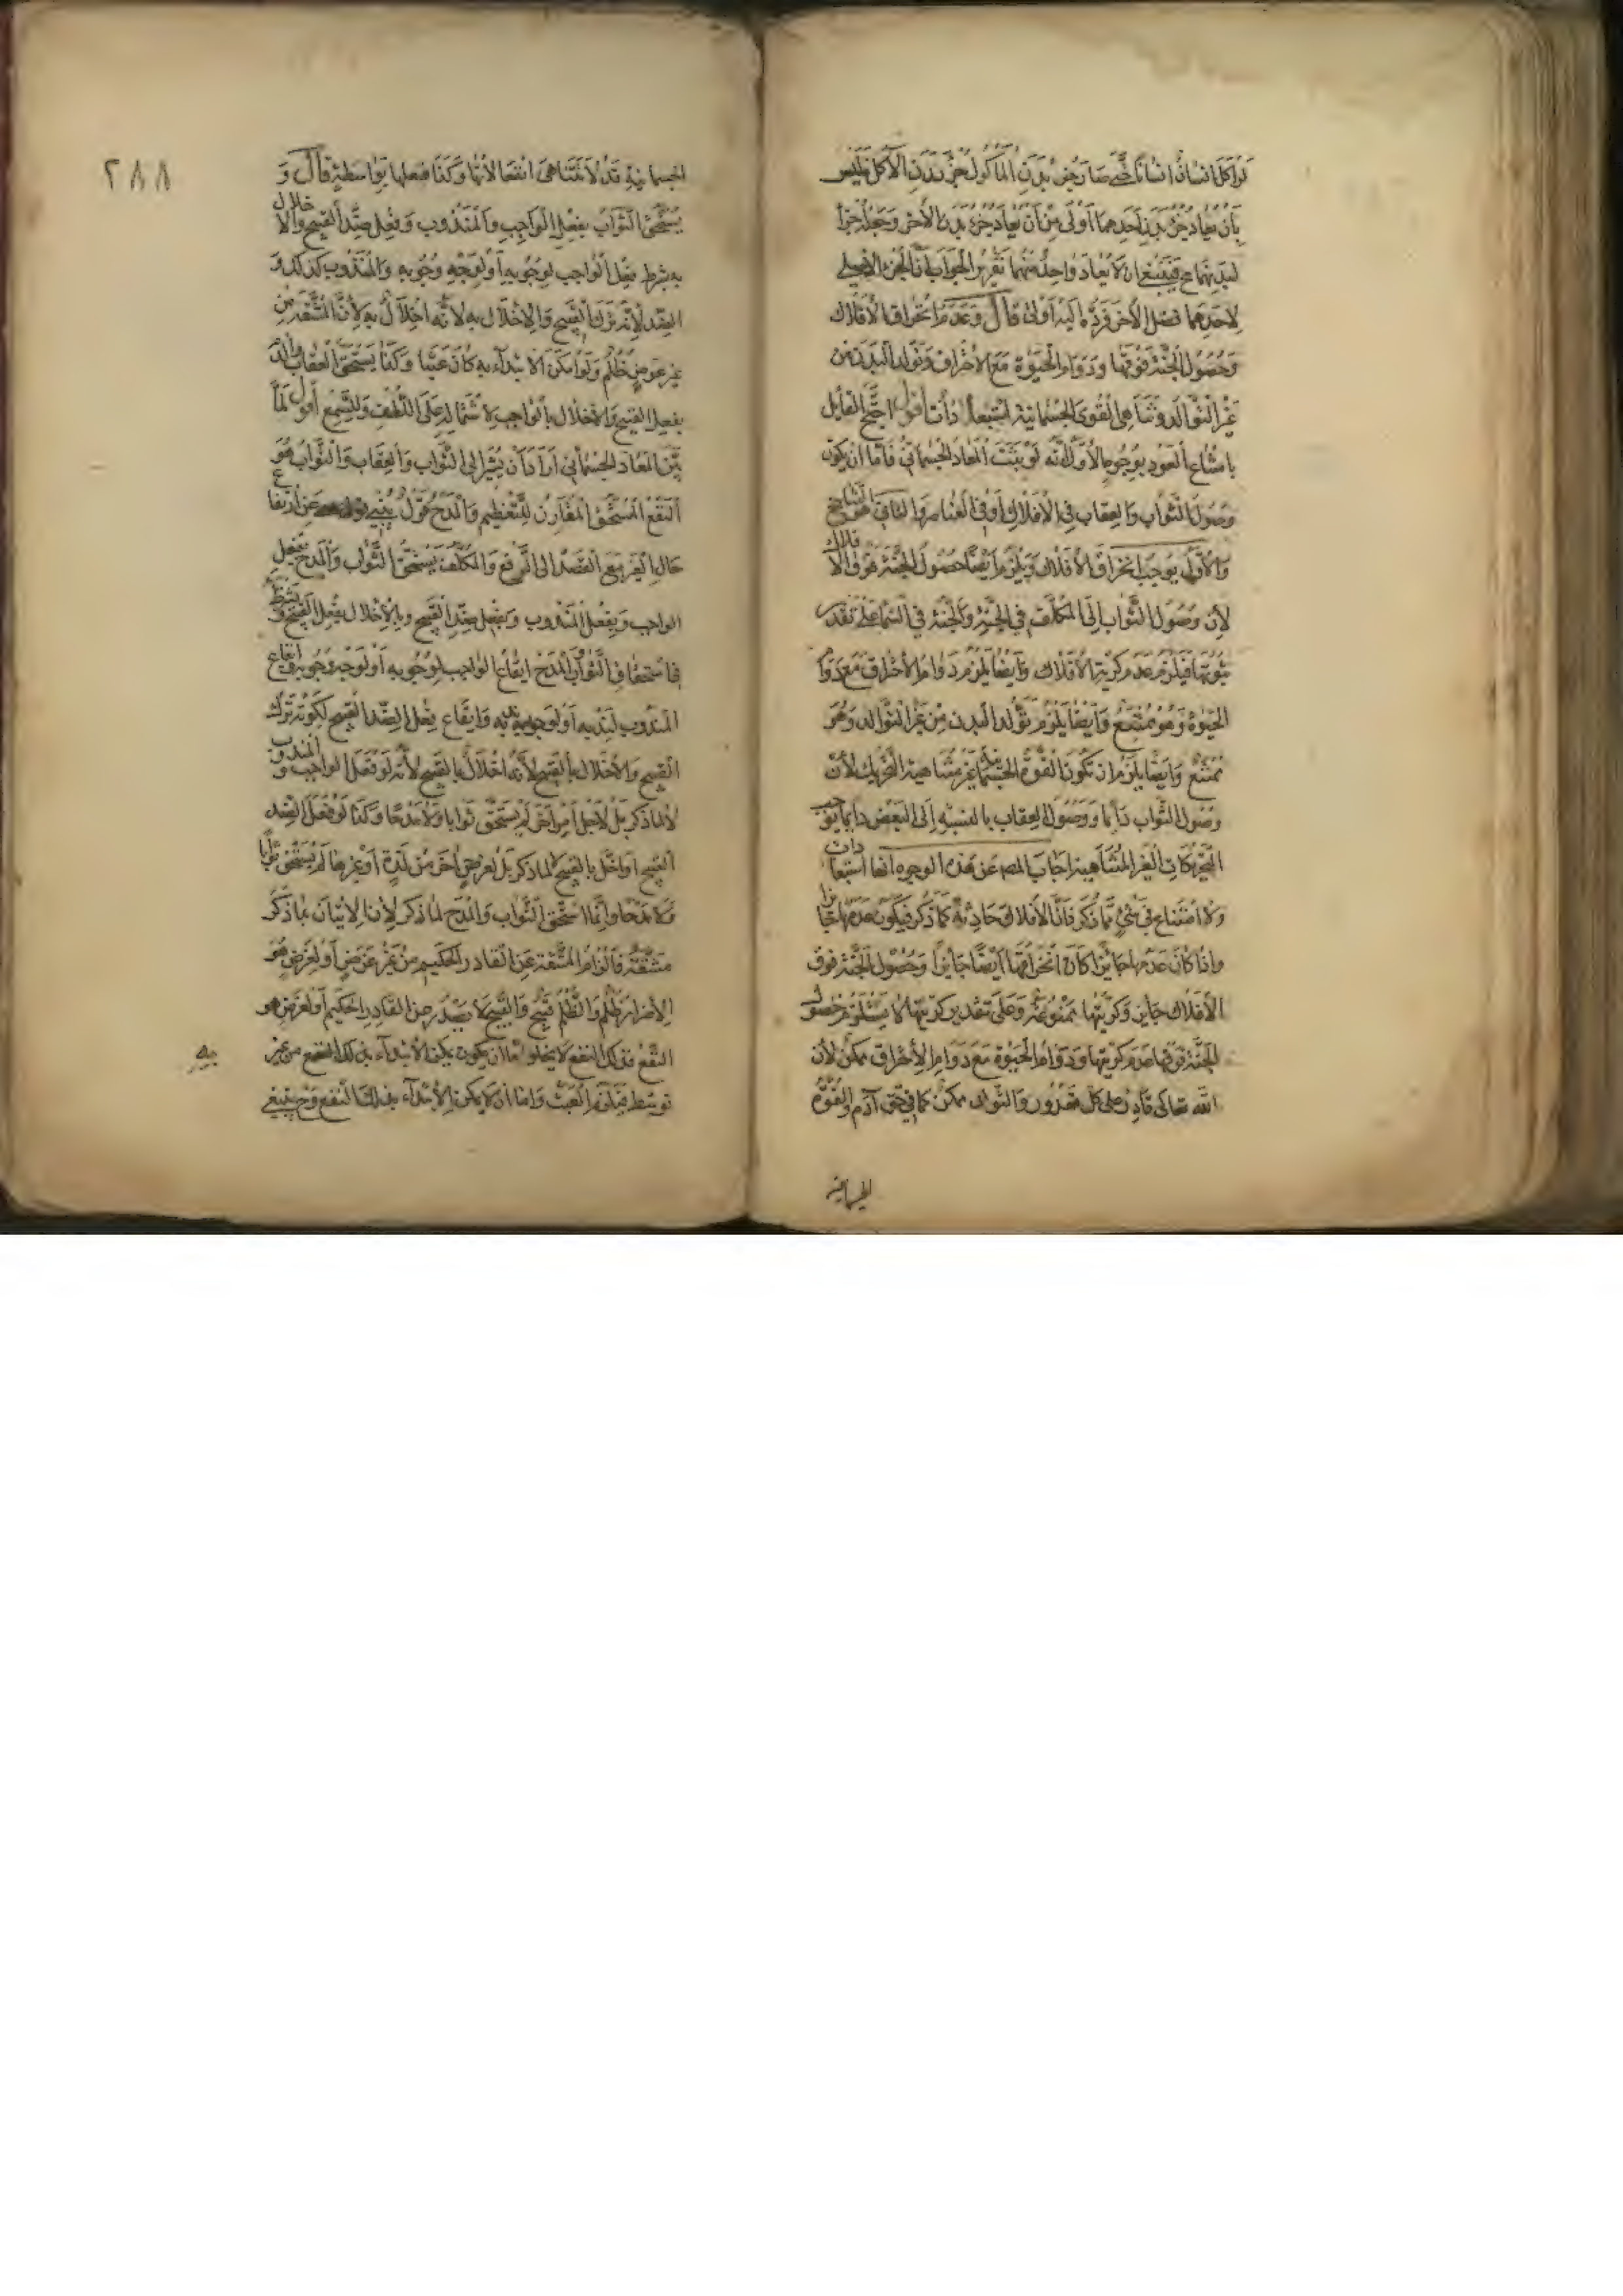 لو اكل انسان انسانا حتى صار جزء بدن المأكول جزء بدن الآكل فليس
بان يعاد جزء بدن احدهما اولى من ان يعاد جزء بدن الآخر وجعله جزأ
لبدنهما مح فينبغى ان لا يعاد واحد منهما تقرير الجواب ان الجزء الاصلى
لاحدهما فضل الآخر فرده اليه اولى قال وعدم انخراق الافلاك
وحصول الجنة فوقها ودوام الحيوة مع الاحتراق وتولد البدن من
غير التوالد وتناهى القوى الجسمانية استبعادات اقول احتج القائل
بامتناع العود بوجوه الاول انه لو ثبت المعاد الجسمانى فاما ان يكون
وصول الثواب والعقاب فى الافلاك او فى العناصر والثانى هو التناسخ
والاول يوجب انخراق الافلاك ويلزم ايضا حصول الجنة فوق الافلاك
لان وصول الثواب الى المكلف فى الجنة والجنة فى السماء على تقدير
ثبوتها فيلزم عدم كرية الافلاك وايضا يلزم دوام الاحتراق مع دوام
الحيوة وهو ممتنع وايضا يلزم تولد البدن من غير التوالد وهو
ممتنع وايضا يلزم ان تكون القوة الجسمانية غير متناهية التحريك لان
وصول الثواب دائما ووصول العقاب بالنسبة الى البعض دائما يوجب
التحريكات الغير المتناهية اجاب المص عن هذه الوجوه انها استبعادات
ولا امتناع فى شئ مما ذكر فان الافلاك حادثة كما ذكر فيكون عدمها جائزا
واذا كان عدمها جايزا كان انخراقها ايضا جايزا وحصول الجنة فوق
الافلاك جايز وكريتها ممنوعة وعلى تقدير كريتها لا يستلزم حصول
الجنة فوقها عدم كريتها ودوام الحيوة مع دوام الاحتراق ممكن لان
الله تعالى قادر على كل مقدور والتولد ممكن كما فى حق آدم والقوة
الجسمانية
٢٨٨
الجسمانية قد لا تتناهى انفعالاتها وكذا فعلها بواسطة قال و
يستحق الثواب بفعل الواجب والمندوب وفعل ضد القبيح والاخلال
به بشرط فعل الواجب لوجوبه او لوجه وجوبه والمندوب كذلك و
الضد لانه ترك القبيح والاخلال به لانه اخلال به لان المشقة من
غير عوض ظلم ولو امكن الابتداء به كان عبثا وكذا يستحق العقاب والذم
بفعل القبيح والاخلال بالواجب لاشتماله على اللطف وللسمع اقول لما
بين المعاد الجسمانى اراد ان يشير الى الثواب والعقاب والثواب هو
النفع المستحق المقارن للتعظيم والمدح قول ينبئ عن ارتفاع
حال الغير مع القصد الى الرفع والمكلف يستحق الثواب والمدح بفعل
الواجب وبفعل المندوب وبفعل ضد القبيح وبالاخلال بفعل القبيح ويشترط
فى استحقاق الثواب والمدح ايقاع الواجب لوجوبه او لوجه وجوبه وايقاع
المندوب لندبه او لوجه ندبه وايقاع فعل الضد القبيح لكونه ترك
القبيح والاخلال بالقبيح لانه اخلال بالقبيح لانه لو فعل الواجب و المندوب
لا لما ذكر بل لاجل امر آخر لم يستحق ثوابا ولا مدحا وكذا لو فعل الضد
القبيح او اخل بالقبيح لا لما ذكر بل لغرض آخر من لذة او غيرها لم يستحق ثوابا
ولا مدحا وانما استحق الثواب والمدح لما ذكر لان الاتيان بما ذكر
مشقة فالزام المشقة عن القادر الحكيم من غير عوض او لغرض هو
الاضرار ظلم والظلم قبيح والقبيح لا يصدر عن القادر الحكيم او لغرض هو
النفع فذلك النفع لا يخلو اما ان يكون يمكن الابتداء بذلك النفع من غير
توسط فيلزم العبث واما ان لا يمكن الابتداء بذلك النفع وح ينبغى